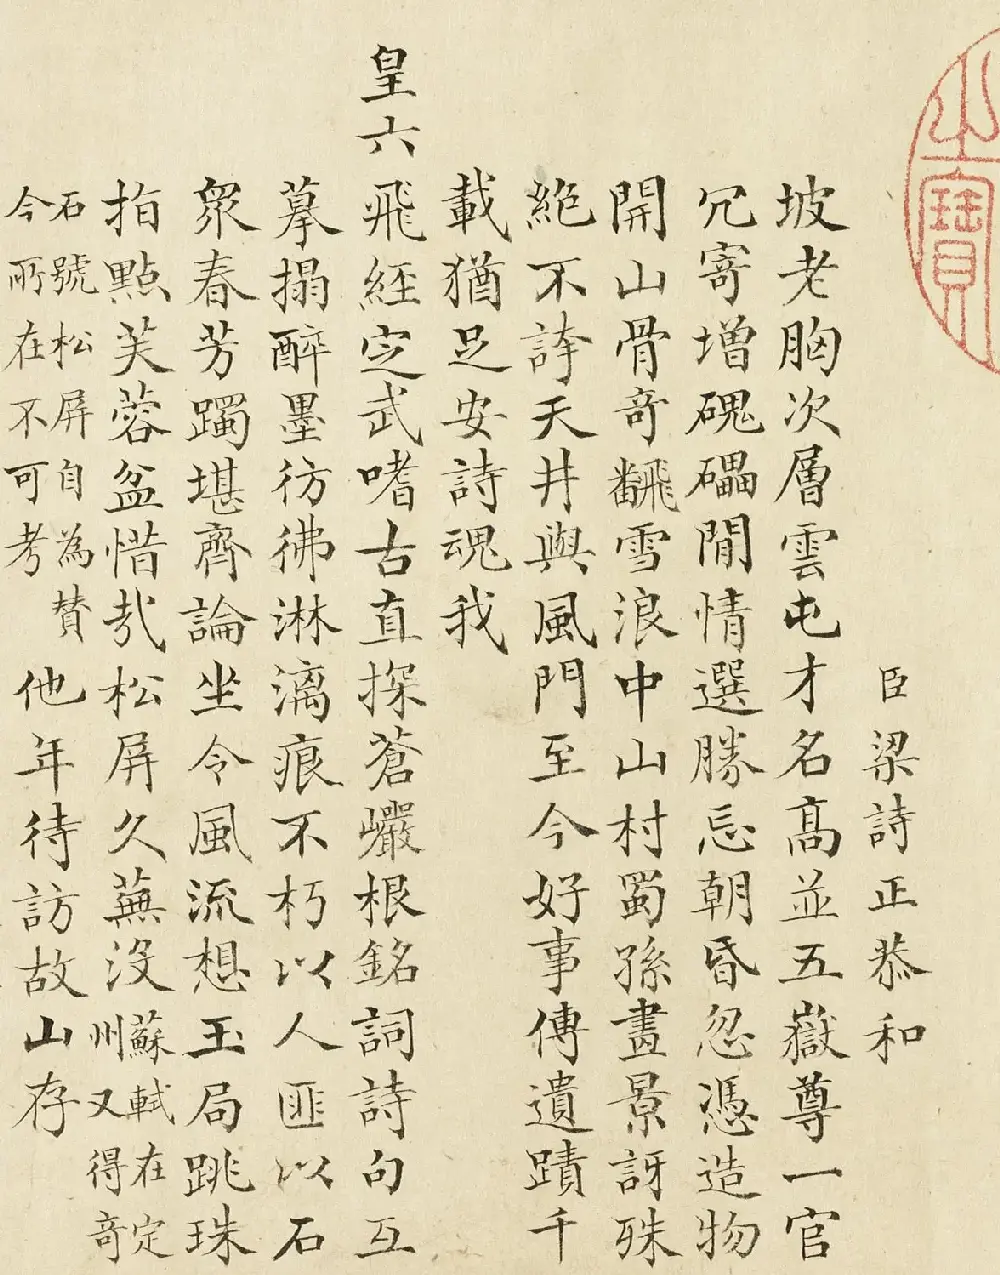 之寶
臣梁詩正恭和
坡老胸次層雲屯才名高並五嶽尊一官
冗寄增磈礧閒情選勝忘朝昏忽憑造物
開山骨奇飜雪浪中山村蜀孫畫景訝殊
絶不誇天井與風門至今好事傳遺蹟千
載猶足安詩魂我
皇六飛經定武嗜古直探蒼巗根銘詞詩句互
摹搨醉墨彷彿淋漓痕不朽以人匪以石
衆春芳躅堪齊論坐令風流想玉局跳珠
指點芙蓉盆惜哉松屏久蕪沒蘇軾在定
州又得奇
石號松屏自為贊
今所在不可考他年待訪故山存